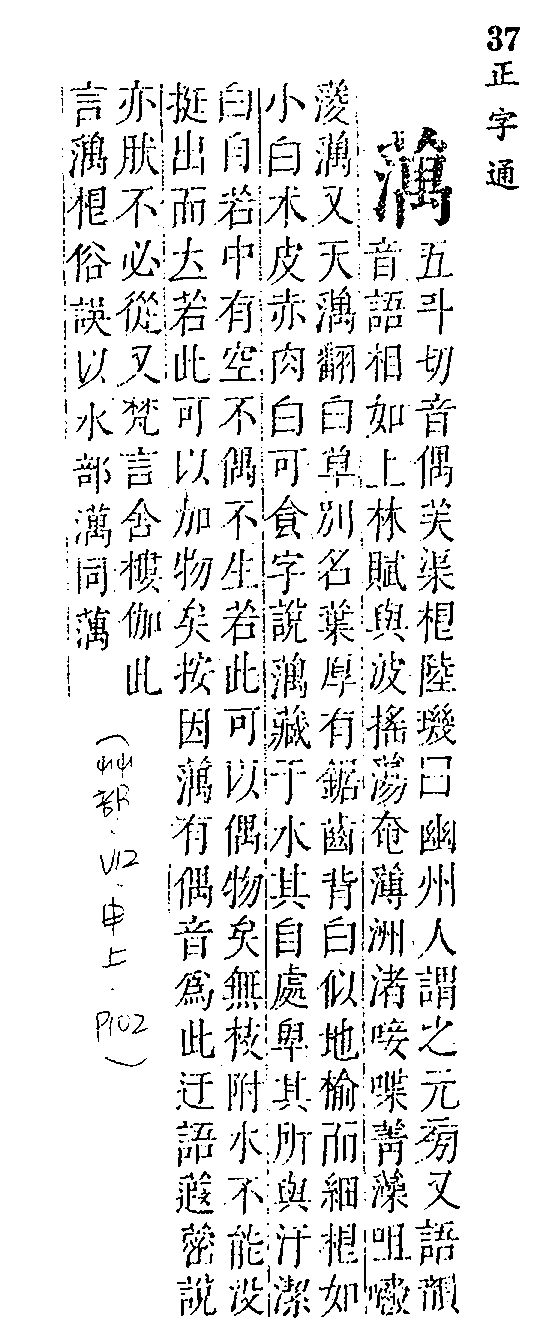 37 正字通
澫
五斗切音偶芙渠根陸璣曰幽州人謂之元旁又語韻
音語相如上林賦與波搖蕩奄薄洲渚唼喋菁藻咀嚼
菱藕又天藕翻白草別名葉厚有鋸齒背白似地榆而細根如
小白朮皮赤肉白可食字說藕藏于水其自處卑其所與汙潔
白自若中有空不偶不生若此可以偶物矣無枝附水不能沒
挺出而大若此可以加物矣按因藕有偶音為此迂語蔆密說
亦肰不必從又梵言舍樓伽此
言藕根俗誤以水部澫同藕
（艸部．V12．申上．P102）